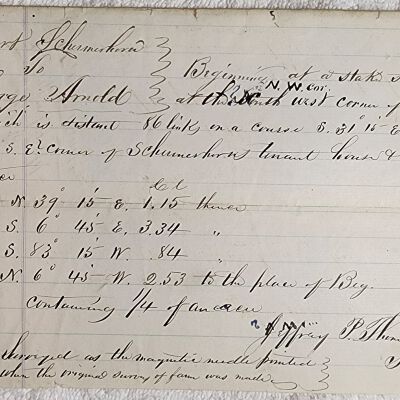 Schermerhorn
To Beginning at a stake
Arnold at the South West corner of
N. W. Cor.
is distant 86 links on a course S. 31° 15 E
S. E. corner of Schermerhorns tenant house &
Ct
N. 39° 15 E. 1.15 thence
S. 6° 45 E. 3.34 "
S. 83° 15 W. .84 "
N. 6° 45 W. 2.53 to the place of Beg.
containing 1/4 of an acre
Jeffrey P. Thom
Surveyed as the magnetic needle pointed
when the original survey of farm was made